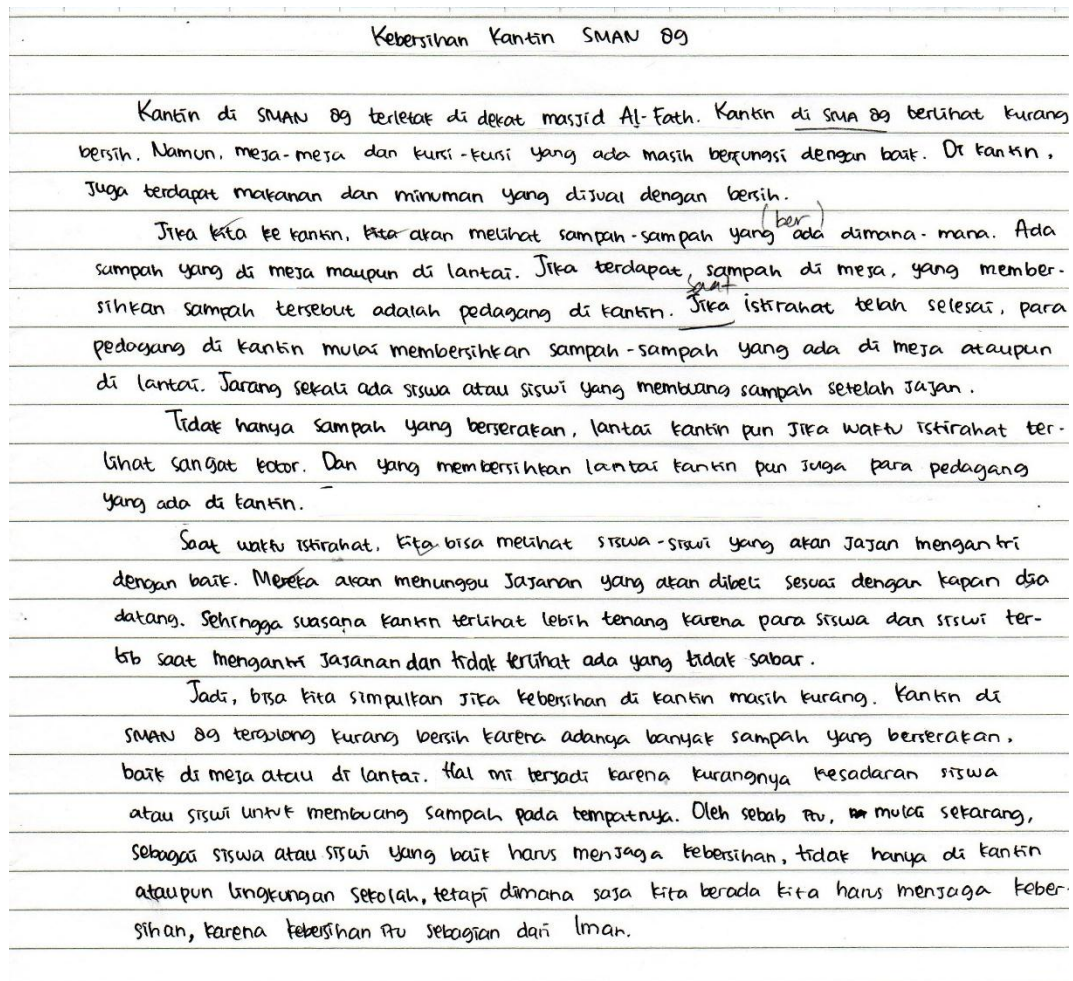 Kebersihan Kantin SMAN 89
Kantin di SMAN 89 terletak di dekat masjid Al-Fath. Kantin di SMA 89 terlihat kurang
bersih. Namun, meja-meja dan kursi-kursi yang ada masih berfungsi dengan baik. Di kantin,
juga terdapat makanan dan minuman yang dijual dengan bersih.
(ber)
Jika kita ke kantin, kita akan melihat sampah-sampah yang ada dimana-mana. Ada
sampah yang di meja maupun di lantai. Jika terdapat, sampah di meja, yang member-
saat
sihkan sampah tersebut adalah pedagang di kantin. Jika istirahat telah selesai, para
pedagang di kantin mulai membersihkan sampah-sampah yang ada di meja ataupun
di lantai. Jarang sekali ada siswa atau siswi yang membuang sampah setelah jajan.
Tidak hanya sampah yang berserakan, lantai kantin pun jika waktu istirahat ter-
lihat sangat kotor. Dan yang membersihkan lantai kantin pun juga para pedagang
yang ada di kantin.
Saat waktu istirahat, kita bisa melihat siswa-siswi yang akan jajan mengantri
dengan baik. Mereka akan menunggu jajanan yang akan dibeli sesuai dengan kapan dia
datang. Sehingga suasana kantin terlihat lebih tenang karena para siswa dan siswi ter-
tib saat mengantri jajanan dan tidak terlihat ada yang tidak sabar.
Jadi, bisa kita simpulkan jika kebersihan di kantin masih kurang. Kantin di
SMAN 89 tergolong kurang bersih karena adanya banyak sampah yang berserakan,
baik di meja atau di lantai. Hal ini terjadi karena kurangnya kesadaran siswa
atau siswi untuk membuang sampah pada tempatnya. Oleh sebab itu, mulai sekarang,
sebagai siswa atau siswi yang baik harus menjaga kebersihan, tidak hanya di kantin
ataupun lingkungan sekolah, tetapi dimana saja kita berada kita harus menjaga keber-
sihan, karena kebersihan itu sebagian dari Iman.